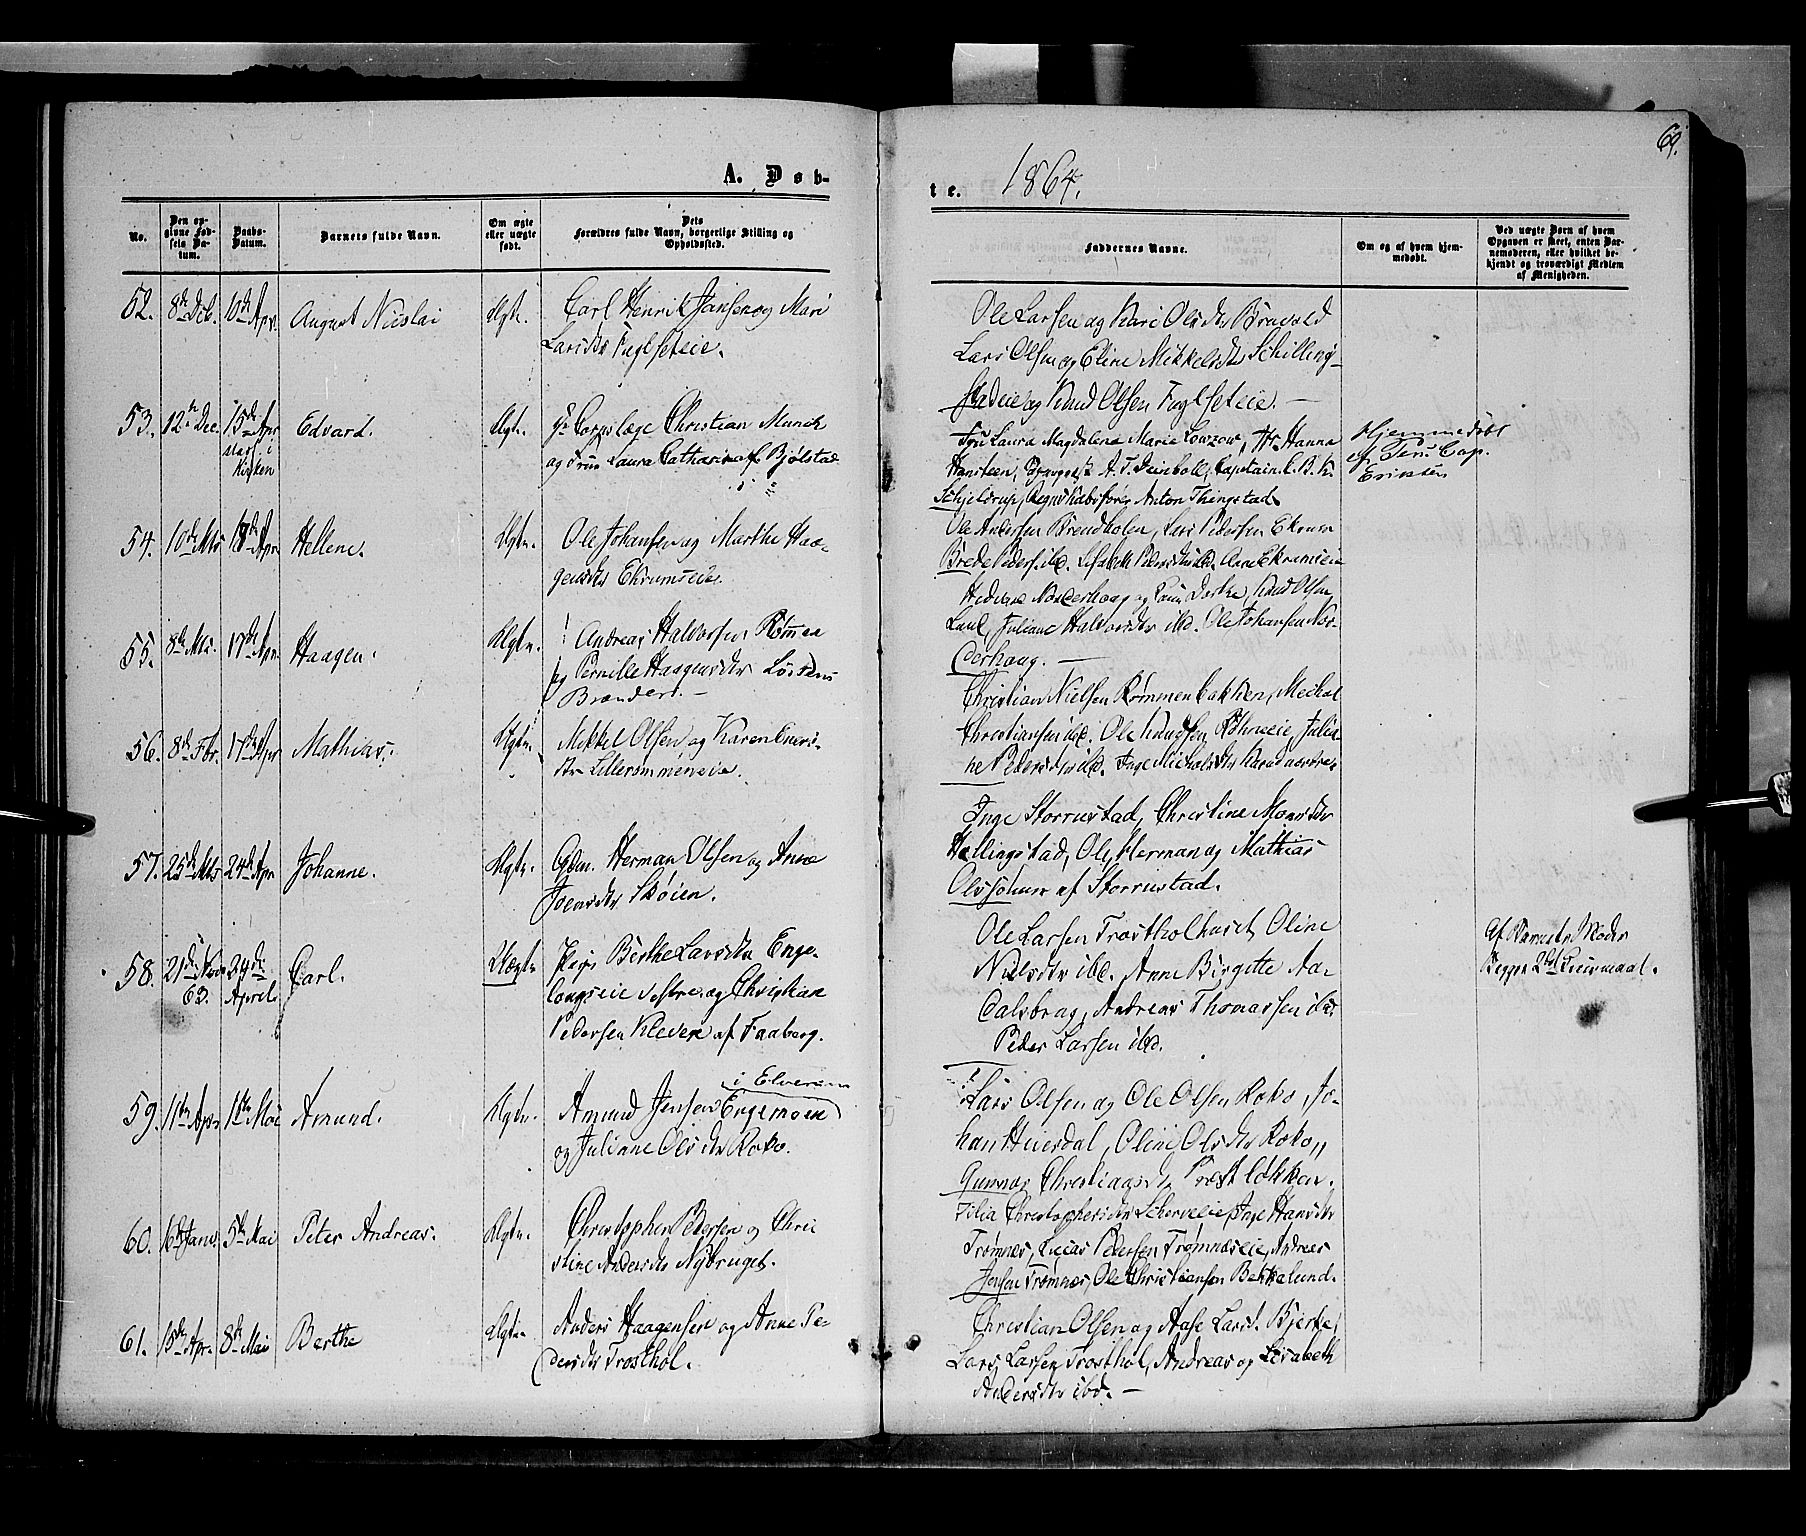 69.
A. Døb-
te. 1864.
No.
Den op-
givne Fød-
sels Da-
tum.
Daabs-
Datum.
Barnets fulde Navn.
Om ægte
eller uægte
født.
Dets
Forældres fulde Navn, borgerlige Stilling og
Opholdssted.
Faddernes Navne.
Om og af hvem hjem-
medøbt.
Ved uægte Børn af hvem
Opgaven er skeet, enten Bar-
nemoderen, eller hvilket be-
kjendt og troværdigt Medlem
af Menigheden.
52. 8de Deb. 10de Apr. August Nicolai Ægte. Carl Henrik Jansen og Mari
Larsdtr Fuglseteie.
Ole Larsen og Kari Olsdtr Bruvold
Lars Olsen og Eline Mikkelsdtr Schilling-
stadeie og Knud Olsen Fuglseteie. —
53. 12te Dec. 15de Apr
i
Kirken
Edvard. Ægte. Corpslæge Christian Munch
og Frue Laura Catharina af Bjølstad
Fru Laura Magdalena Marie Lowzow, Fr. Hanna
Hansteen, A. T. Deinboll, Captain C. B. K.
Schjeldrup, Regnskabsfører Anton Thingstad
Hjemmedøbt
af Pers. Cap.
Eriksen
54. 10de Mts 18de Apr Hellene. Ægte. Ole Johansen og Marthe Haa-
gensdtr Ekrumseie.
Ole Andersen Brendholen, Lars Pedersen Ekrum
Brede Peders. ibd. Lisabeth Pedersdtr ibd. Anne Ekrumseie
55. 8de Mts. 17de Apr. Haagen. Ægte. Andreas Halvorsen Rømmen
og Pernille Haagensdtr Løstens
Brænderi. —
Hedevig Norderhaug og Karen Dorthea, Knud Olsen
Lund, Juliane Halvorsdtr ibd. Ole Johansen Nor-
derhaug. —
56. 8de Fbr. 17de Apr Mathias. Ægte. Mikkel Olsen og Karen Eneri-
dtr Lillerømmeneie.
Christian Nielsen Rømmenbakken, Michal
Christiansen ibd. Ole Knudsen Røhneeie, Julia-
ne Pedersdtr ibd. Inge Michalsdtr
57. 25de Mts 24de Apr Johanne. Ægte. Gbm. Herman Olsen og Anne
Joensdtr Skøien.
Inge Storrustad, Christine Monsdtr
Hellingstad, Ole, Herman og Mathias
Olssønner af Storrustad.
58. 21de Nov
63. 24de
April. Carl. Uægte Pige Berthe Larsdtr Enge-
laugseie vestre og Christian
Pedersen Kleven af Faaberg.
Ole Larsen Trostholhuset, Oline
Nielsdtr ibd. Anne Birgitte Aa-
dalsbrag, Andreas Thomassen ibd.
Peder Larsen ibd.
Af Barnets Moder
Begges 2det Leiermaal.
59. 11te Apr 1ste Mai Amund. Ægte. Amund Jensen Engemoen
i Elverum
og Juliane Olsdtr Roko.
Lars Olsen og Ole Olsen Roko, Jo-
han Huersdal, Oline Olsdtr Roko,
Gunnar Christiansen Præstløkken.
60. 16de Janr. 5te Mai Peter Andreas. Ægte. Christopher Pedersen og Chris
stine Andersdtr Nybruget.
Zilia Christophersdtr Inge Hansdtr
Trømnes, Lucas Pedersen Trømneseie, Andreas
Jensen Trømnes, Ole Christiansen Bekkelund.
61. 15de Apr. 8de Mai Berthe Ægte. Anders Haagensen og Anne Pe-
dersdtr Trosthol.
Christian Olsen og Aase Larsd. Bjerke,
Lars Larsen Trosthol, Andreas og Lisabeth
Andersdtr ibd. —